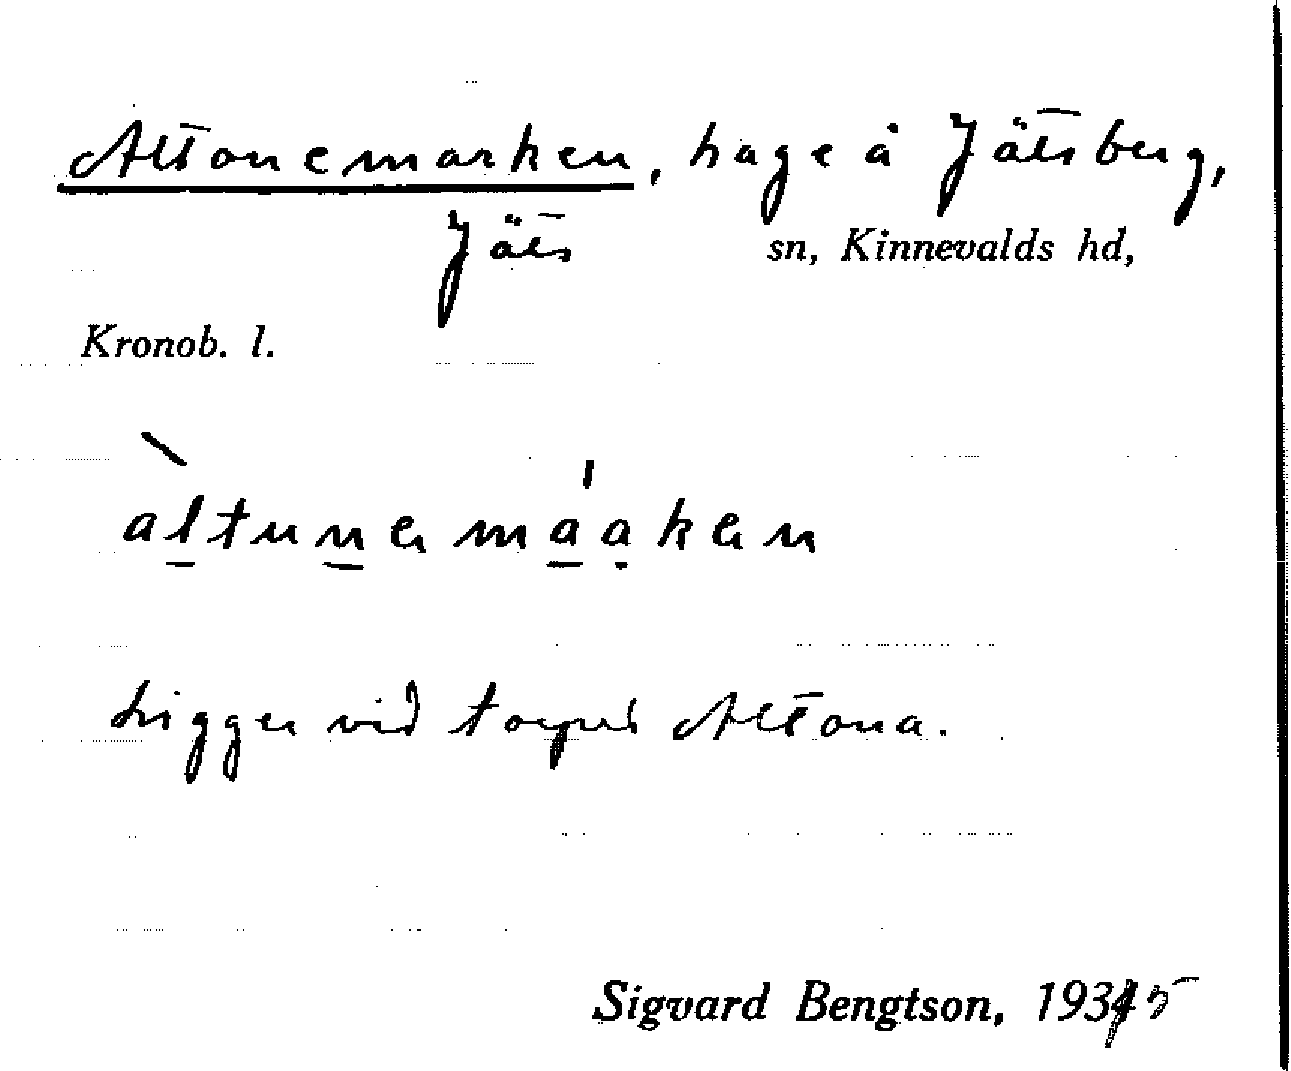 Altonemarken, hage å Jätsberg,
Jäts sn, Kinnevalds hd,
Kronob. l.
altunemaaken
Ligger vid torpet Altona.
Sigvard Bengtson, 1935